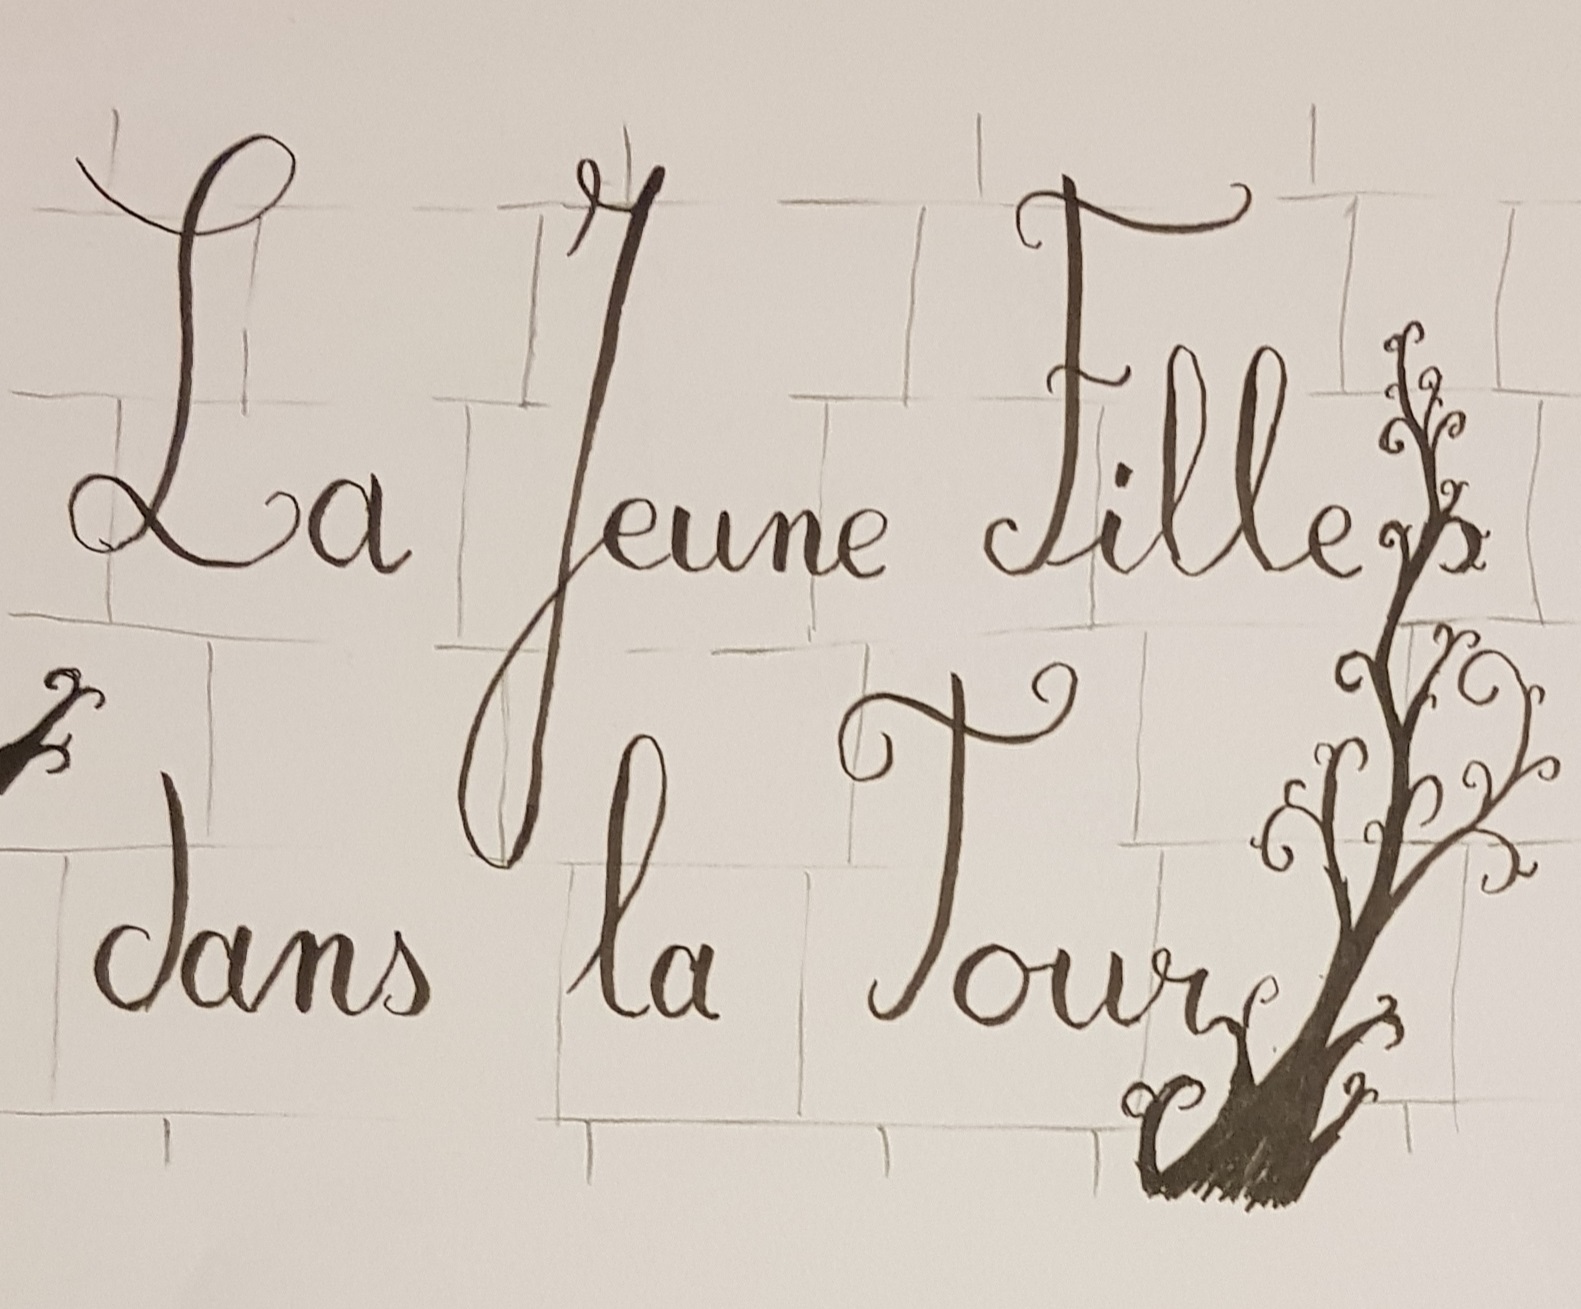 La Jeune Fille
dans la Tour